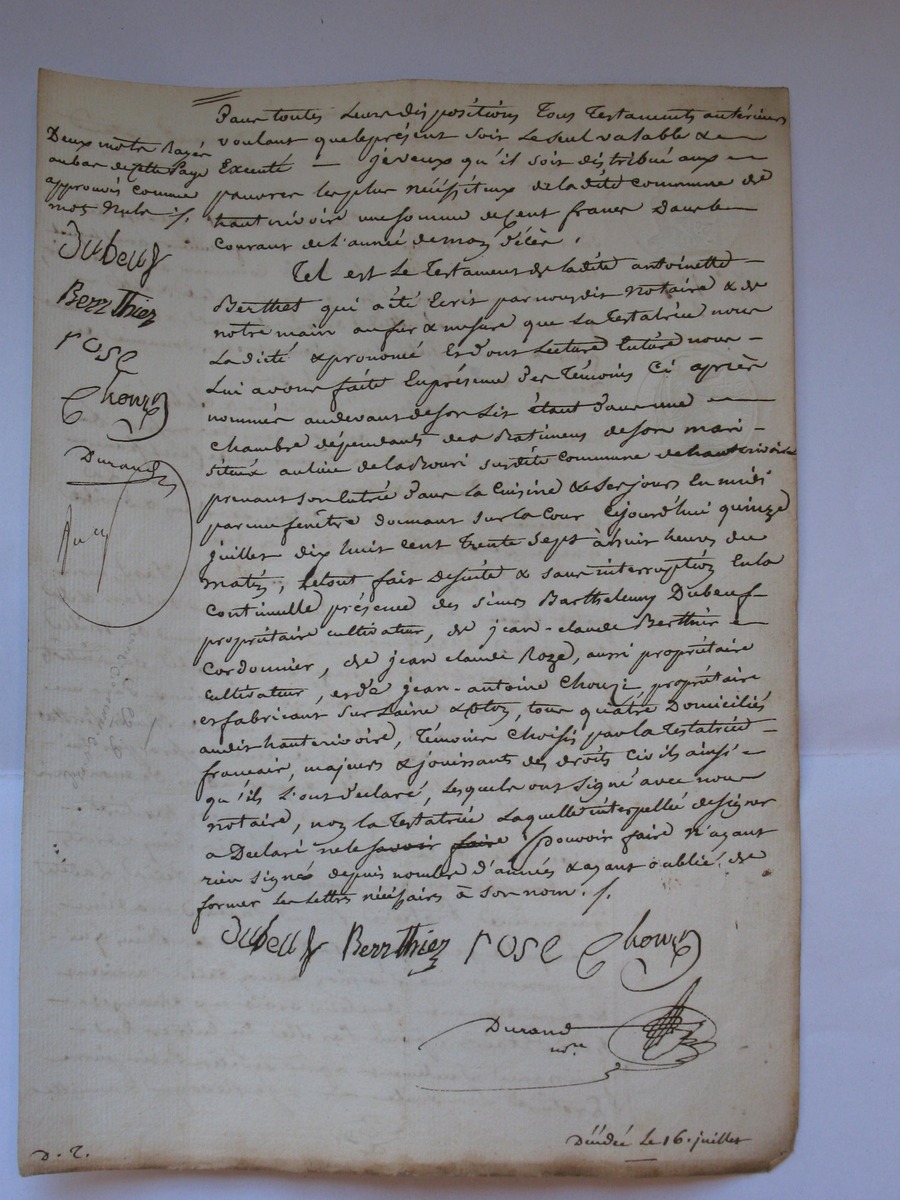 Deux mots Rayés
au bas de cette Page
approuvés comme
mots Nuls ./.
Dubeuf
Berrthiez
rose
Chouzi
Durand
dans toutes leurs dispositions Tous Testaments antérieurs
voulant que le présent soit Le seul valable & —
Executé — je veux qu'il soit distribué aux —
pauvres les plus nécéssiteux de la dite commune de
hauterivoire une somme de cent francs dans le —
courant de l'année de mon décès .
Tel est Le Testament de la dite antoinette —
Berthet qui a été Ecrit par nous dit Notaire & de
notre main au fur & mesure que La Testatrice nous
La dicté & prononcé Et dont Lecture Entière nous —
Lui avons faite En présence des Témoins Ci après
nommés au devant de son Lit étant dans une —
chambre dépendants des Batimens de son mari —
situés au lieu de la susdite commune de hauterivoire
prenant son Entrée dans La Cuisine & ses jours En midi
par une fenêtre donnant sur la Cour Cejourd'hui quinze
juillet dix huit cent trente sept à huit heures du
matin, Le tout fait desuite & sans interruption En la
Continuelle présence des sieurs Barthelemy Dubeuf
propriétaire cultivateur, de jean-claude Berthier —
Cordonnier, de jean claude Roze, aussi propriétaire
cultivateur, et de jean-antoine Chouzi propriétaire
et fabricant sur Laine &, tous quatre Domiciliés
audit hauterivoire, Témoins Choisis par la Testatrice —
francais, majeurs & jouissants des droits Civils ainsi —
qu'ils L'ont déclaré, Lesquels ont signé avec nous
notaire, non La Testatrice Laquelle interpellée de signer
a Déclaré ne le savoir faire /pouvoir faire n'ayant
rien signé depuis nombre d'années & ayant oublié de
former Les Lettres nécéssaires à son nom ./.
Dubeuf Berrthiez rose Chouzi
Durand
nre
D. T.
Décédée Le 16 juillet